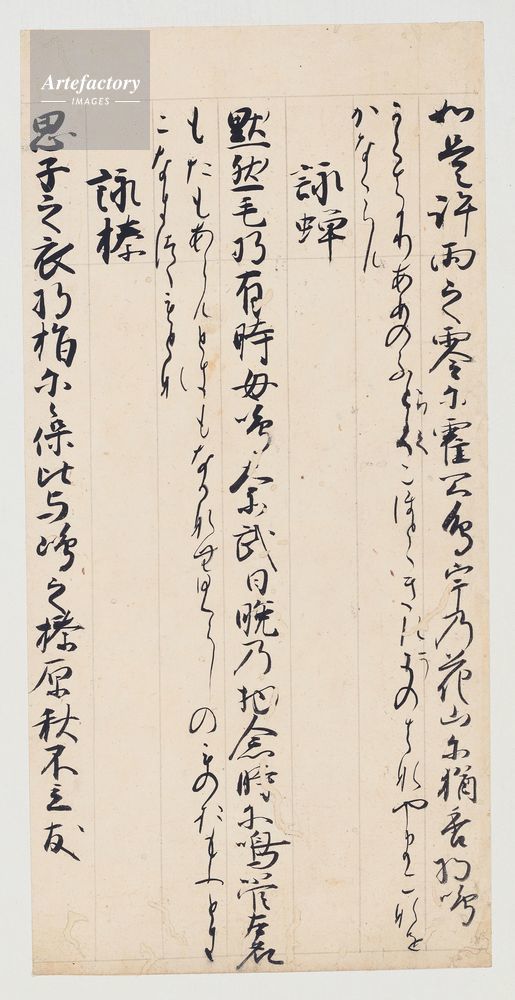 Artefactory
IMAGES
如是許雨之零尓霍公鳥宇乃花山尓猶香将鳴
かくはかりあめのふらくにほとゝきすうのはなやまになを
かなくらん
詠蝉
黙然毛将有時母鳴奈武日晩乃物念時尓鳴管本名
もたもあらんときもなかなむひくらしのものおもふとき
になきつゝもとな
詠榛
思子之衣将揩尓々保比与嶋之榛原秋不立友